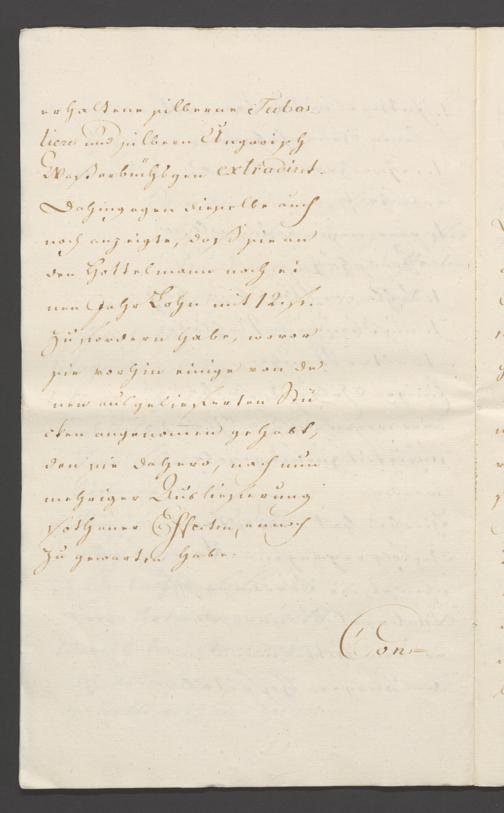 erhaltene silberne Taba-
tiere und silbern Ungarisch
Waßerbüchsgen extradirt.
Dahingegen dieselbe auch
noch anzeigte, daß sie an
den Hottelmann noch ei
nen Jahr Lohn mit 12. fl.
zu fordern habe, wovor
sie vorhin einige von de
nen ausgeliefferten Stü
cken angenommen gehabt,
den sie dahero, nach nun
mehriger Ausliefferung
sothaner Effecten, annoch
zu gewarten habe.
Con=